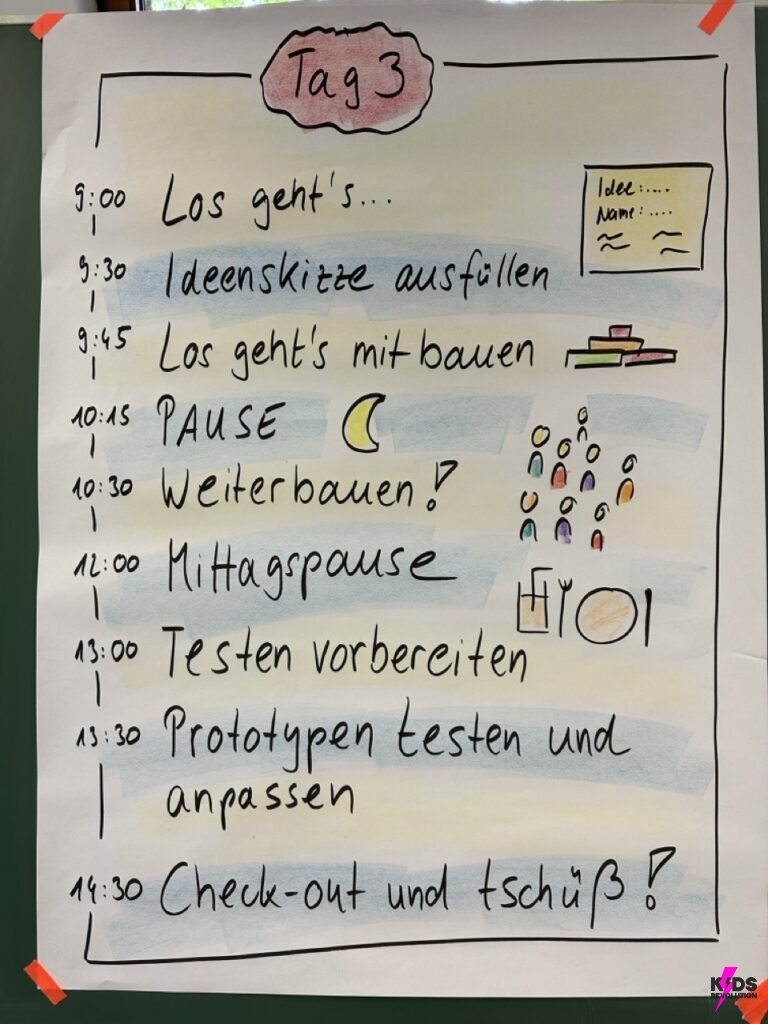 Tag 3
9:00 Los geht's...
Idee:....
Name:....
9:30 Ideenskizze ausfüllen
9:45 Los geht's mit bauen
10:15 PAUSE
10:30 Weiterbauen!
12:00 Mittagspause
13:00 Testen vorbereiten
13:30 Prototypen testen und
anpassen
14:30 Check-out und tschüß!
KIDS
REVOLUTION